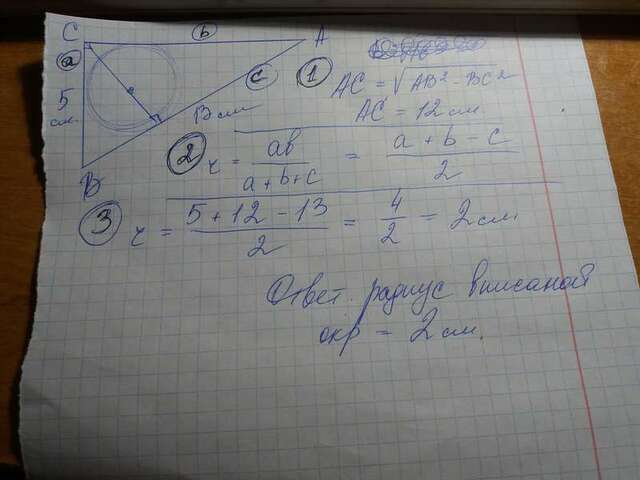 C b A
a
c
5
см.
13 см
B
1 AC = √AB² - BC²
AC = 12 см.
2 r = ab / a + b + c = a + b - c / 2
3 r = 5 + 12 - 13 / 2 = 4 / 2 = 2 см
Ответ. радиус вписаной
окр = 2 см.